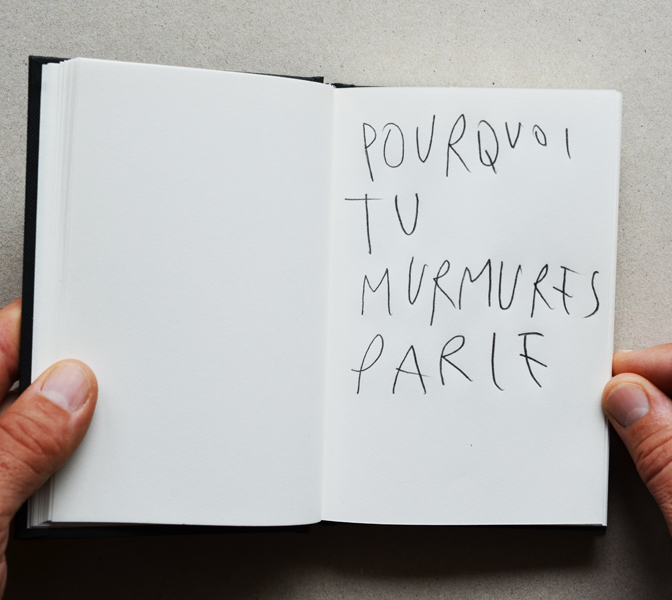 POURQUOI
TU
MURMURES
PARLE